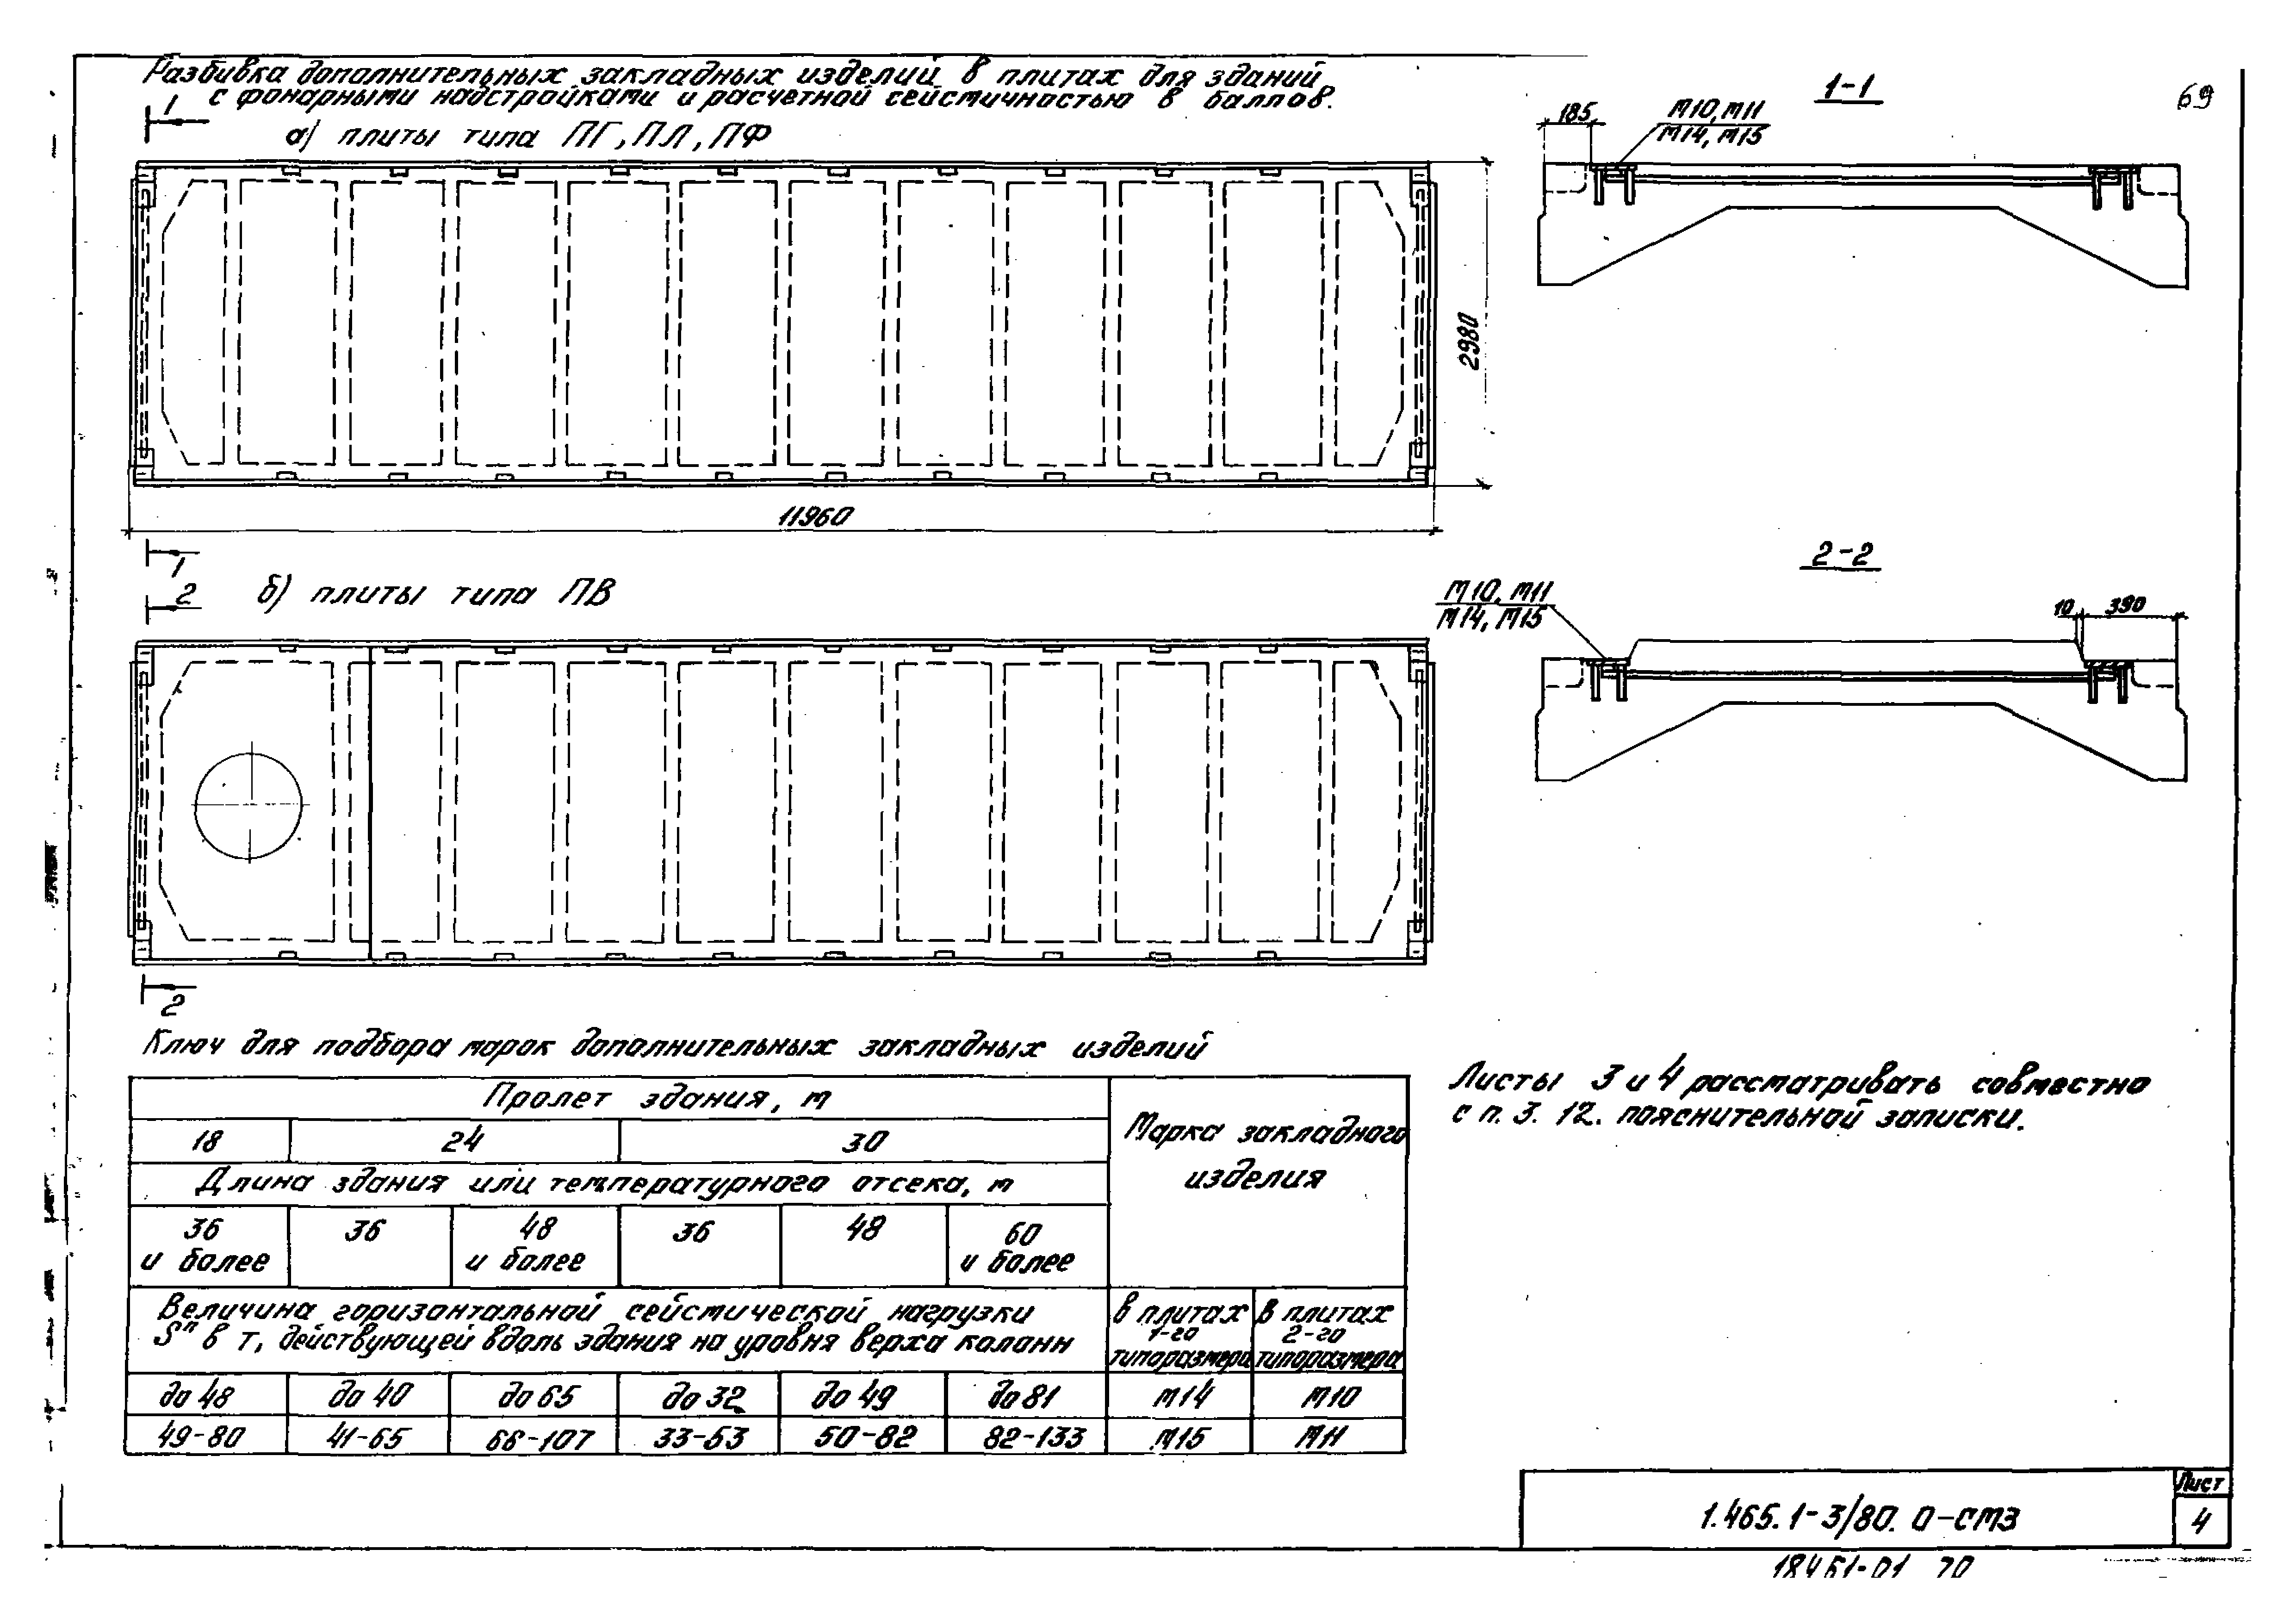 Разбивка дополнительных закладных изделий в плитах для зданий
с фонарными надстройками и расчетной сейсмичностью 8 баллов.
1
а) плиты типа ПГ, ПЛ, ПФ
11960
2980
1
1-1
185
М10, М11
М14, М15
69
2
б) плиты типа ПВ
2
2-2
М10, М11
М14, М15
10
390
Ключ для подбора марок дополнительных закладных изделий
Пролет здания, м
Марка закладного
изделия
18
24
30
Длина здания или температурного отсека, м
36
и более
36
48
и более
36
48
60
и более
Величина горизонтальной сейсмической нагрузки
Sⁿ в т, действующей вдоль здания на уровня верха колонн
в плитах
1-го
типоразмера
в плитах
2-го
типоразмера
до 48
до 40
до 65
до 32
до 49
до 81
М14
М10
49-80
41-65
66-107
33-53
50-82
82-133
М15
М11
Листы 3 и 4 рассматривать совместно
с п. 3.12. пояснительной записки.
1.465.1-3/80. 0-СМ3
Лист
4
18461-01 70